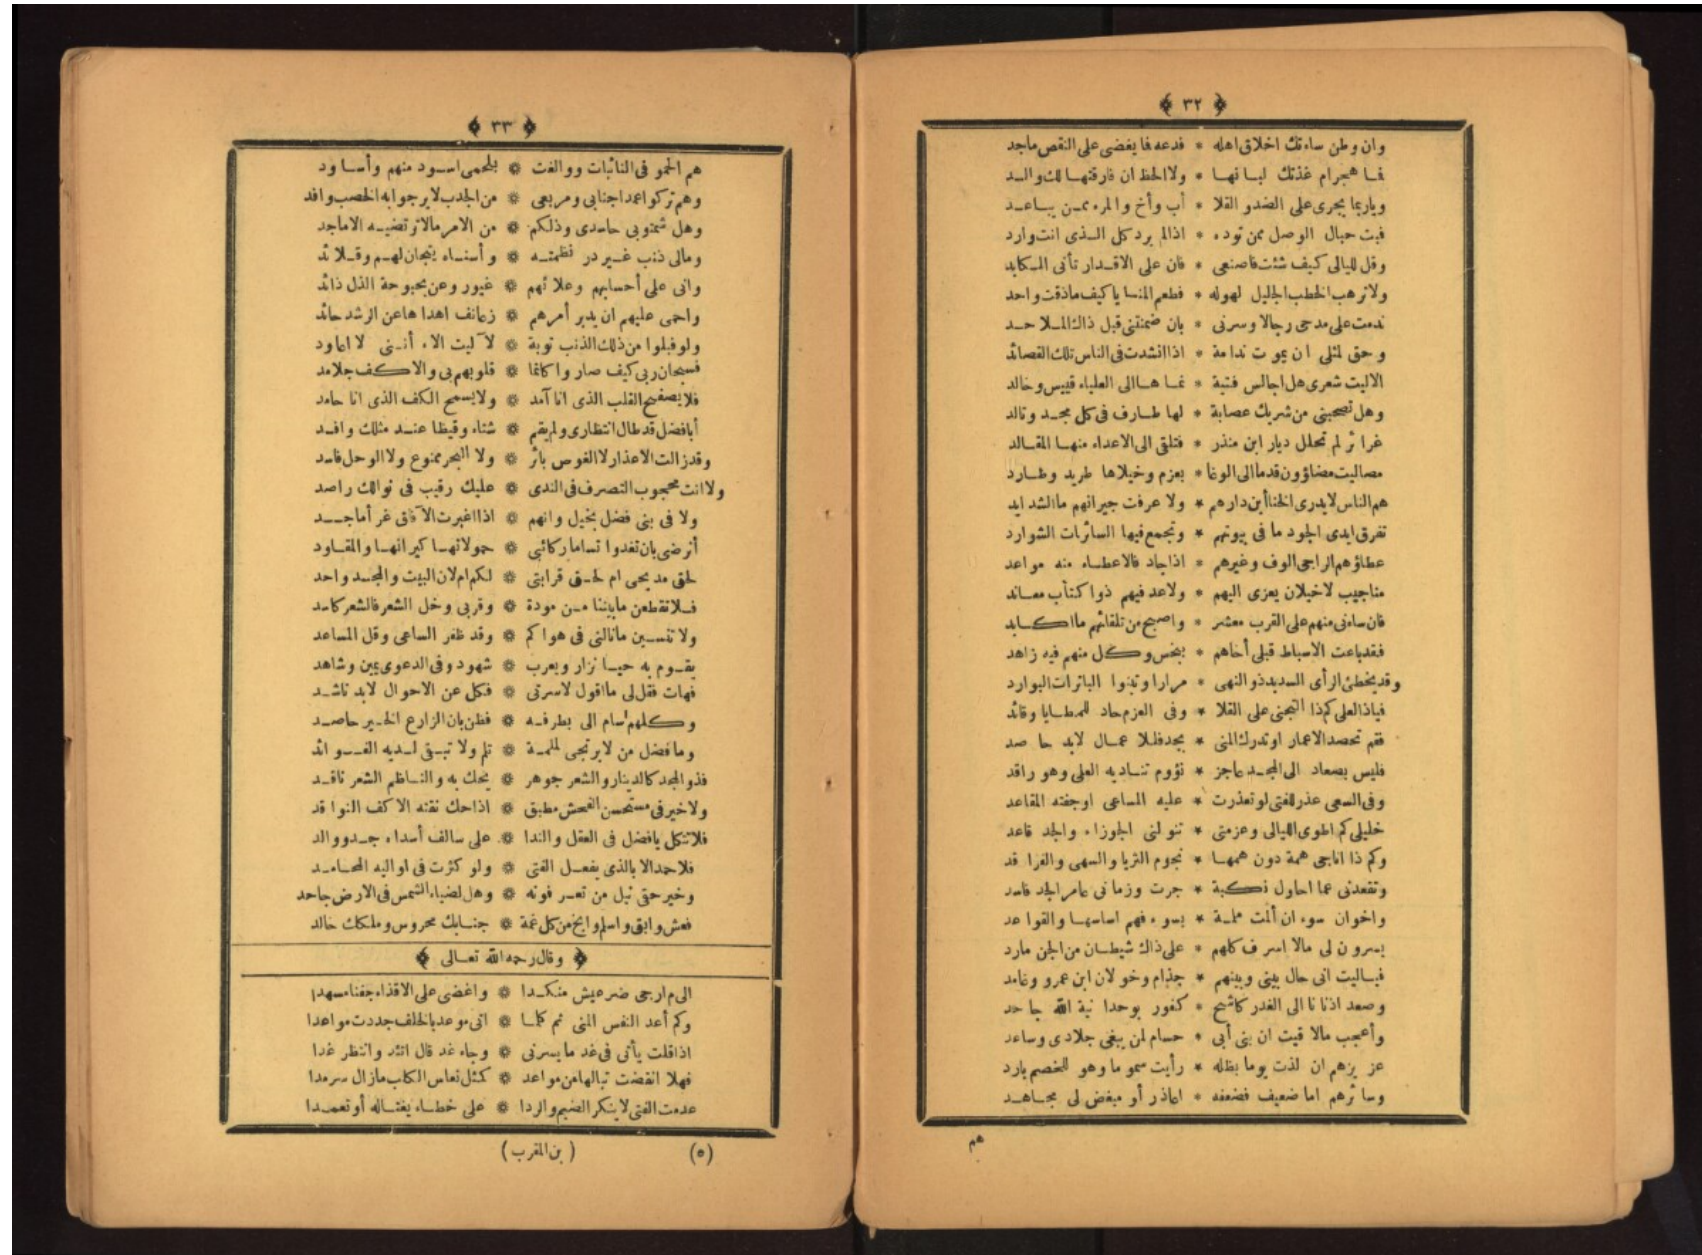 ﴿ ٣٢ ﴾
وان وطن ساءتك اخلاق اهله * فدعه فما يغضى على النقص ماجد
فما هجر ام غذتك لبانها * ولا الحظ ان فارقتها لك والد
وياربما يجرى على الضد والقلا * أب وأخ والمرء ممن يباعد
فبت حبال الوصل ممن توده * اذا لم يرد كل الذى انت وارد
وقل لليالى كيف شئت فاصنعى * فان على الاقدار تأتى المكابد
ولا ترهب الخطب الجليل لهوله * فطعم المنايا كيف ماذقت واحد
ندمت على مدحى رجالا وسرنى * بان ضمنتنى قبل ذاك الملاحد
وحق لمثلى ان يموت ندامة * اذا انشدت فى الناس تلك القصائد
الاليت شعرى هل اجالس فتية * نماها الى العلياء قييس وخالد
وهل تصحبنى من شريك عصابة * لها طارف فى كل مجد وتالد
غرائر لم تحلل ديار ابن منذر * فتلقى الى الاعداء منها المقالد
مصاليت مضاؤون قدما الى الوغا * بعزم وخيلاها طريد وطارد
هم الناس لايدرى الخنا أين دارهم * ولا عرفت جيرانهم ما الشدايد
تفرق ايدى الجود ما فى بيوتهم * وتجمع فيها السائرات الشوارد
عطاؤهم الراجى الوف وغيرهم * اذا جاد فالاعطاء منه مواعد
مناجيب لاخيلان يعزى اليهم * ولاعد فيهم ذوا كتأب معاند
فان ساءنى منهم على القرب معشر * واصبح من تلقائهم ما اكابد
فقد باعت الاسباط قبلى أخاهم * ببخس وكل منهم فيه زاهد
وقد يخطئ الرأى السديد ذو النهى * مرارا وتنبوا الباترات البوارد
فياذا العلى كم ذا التجنى على القلا * وفى العزم حاد للمطايا وقائد
فقم تحصد الاعمار او تدرك المنى * بجد فللاعمال لابد حاصد
فليس بصعاد الى المجد عاجز * نؤوم تناديه العلى وهو راقد
وفى السعى عذر للفتى لو تعذرت * عليه المساعى اوجفته المقاعد
خليلى كم اطوى الليالى وعزمتى * تنولنى الجوزاء والجد قاعد
وكم ذا اناجى همة دون همها * نجوم الثريا والسهى والفراقد
وتقعدنى عما احاول نكبة * جرت وزمانى عامر الجد فاسد
واخوان سوء ان ألمت ملمة * بسوء فهم اساسها والقواعد
يسرون لى مالا اسر فكلهم * على ذاك شيطان من الجن مارد
فياليت انى حال بينى وبينهم * جذام وخولان ابن عمرو وغامد
وصعد اذنانا الى الغدر كاشح * كفور بوحدانية الله جاحد
وأعجب مالاقيت ان بنى أبى * حسام لمن يبغى جلادى وساعد
عزيزهم ان لذت يوما بظله * رأيت سموما وهو للخصم بارد
وسائرهم اما ضعيف فضعفه * اعاذر أو مبغض لى مجاهد
هم
﴿ ٣٣ ﴾
هم الحمو فى النائبات ووالغت * بلحمى اسود منهم وأساود
وهم تركوا عمدا جنابى ومربعى * من الجدب لايرجوا به الخصب وافد
وهل شمتوبى حاسدى وذلكم * من الامر مالاترتضيه الاماجد
ومالى ذنب غير در نظمته * وأسناه تيجان لهم وقلائد
وانى على أحسابهم وعلائهم * غيور وعن بحبوحة الذل ذائد
واحمى عليهم ان يدبر أمرهم * زعانف اهداها عن الرشد حائد
ولو قبلوا من ذلك الذنب توبة * لآليت الاء أننى لا اعاود
فسبحان ربى كيف صاروا كانما * قلوبهم بى والاكف جلامد
فلا يصفح القلب الذى انا آمد * ولا يسمح الكف الذى انا حامد
أبا فضل قد طال انتظارى ولم يقم * شتاء وقيظا عند مثلك وافد
وقد زالت الاعذار لا الغوص بائر * ولا البحر ممنوع ولا الوحل فاسد
ولا انت محجوب التصرف فى الندى * عليك رقيب فى نوالك راصد
ولا فى بنى فضل بخيل وانهم * اذا اغبرت الآفاق غر أماجد
أترضى بان تغدوا تساما ركائبى * حمولاتها كيرانها والمقاود
لحق مديحى ام لحق قرابتى * لكم ام لان البيت والمجد واحد
فلا تقطعن مابيننا من مودة * وقربى وخل الشعر فالشعر كاسد
ولا تنسين مانالنى فى هواكم * وقد ظفر الساعى وقل المساعد
يقوم به حيا نزار ويعرب * شهود وفى الدعوى يمين وشاهد
فهات فقل لى ما اقول لاسرتى * فكل عن الاحوال لابد ناشد
وكلهم سام الى بطرفه * فظن بان الزارع الخير حاصد
ومافضل من لايرتجى لملمة * تلم ولا تبقى لديه الفوائد
فذو المجد كالدينار والشعر جوهر * يحك به والناظم الشعر ناقد
ولاخير فى مستحسن الفحش مطبق * اذا حك نقته الاكف النواقد
فلا تتكل يافضل فى العقل والندا * على سالف أسداه جد ووالد
فلا حمد الا بالذى يفعل الفتى * ولو كثرت فى اواليه المحامد
وخير حتى نيل من تعر فوته * وهل لضياء الشمس فى الارض جاحد
فعش وابق واسلم وانج من كل غمة * جنابك محروس وملكك خالد
﴿ وقال رحمه الله تعالى ﴾
الى م ارجى ضر عيش منكدا * واغضى على الاقذاء جفنا مسهدا
وكم أعد النفس المنى ثم كلما * اتى موعد بالخلف جددت مواعدا
اذا قلت يأتى فى غد مايسرنى * وجاء غد قال اتئد وانتظر غدا
فهلا انقضت تبالها من مواعد * كمثل نعاس الكلب مازال سرمدا
عدمت الفتى لاينكر الضيم والردا * على خطاء يغتاله أو تعمدا
(٥) (بن المقرب)